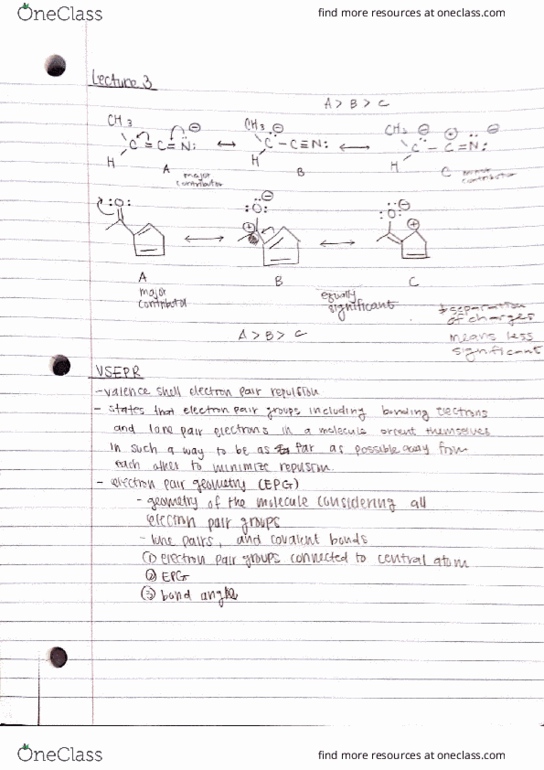 OneClass
find more resources at oneclass.com
Lecture 3
A > B > C
CH3 CH3 CH3
C = C = N: ↔ C - C ≡ N: ↔ C - C = N:
H H H
A B C
major contributor
:O: :O: :O:
A B C
major contributor
equally significant
separation of charges means less significant
A > B > C
VSEPR
- valence shell electron pair repulsion
- states that electron pair groups including bonding electrons
and lone pair electrons in a molecule orient themselves
in such a way to be as far as possible away from
each other to minimize repulsion.
- electron pair geometry (EPG)
- geometry of the molecule considering all
electron pair groups
- lone pairs, and covalent bonds
① electron pair groups connected to central atom
② EPG
③ bond angle
OneClass
find more resources at oneclass.com